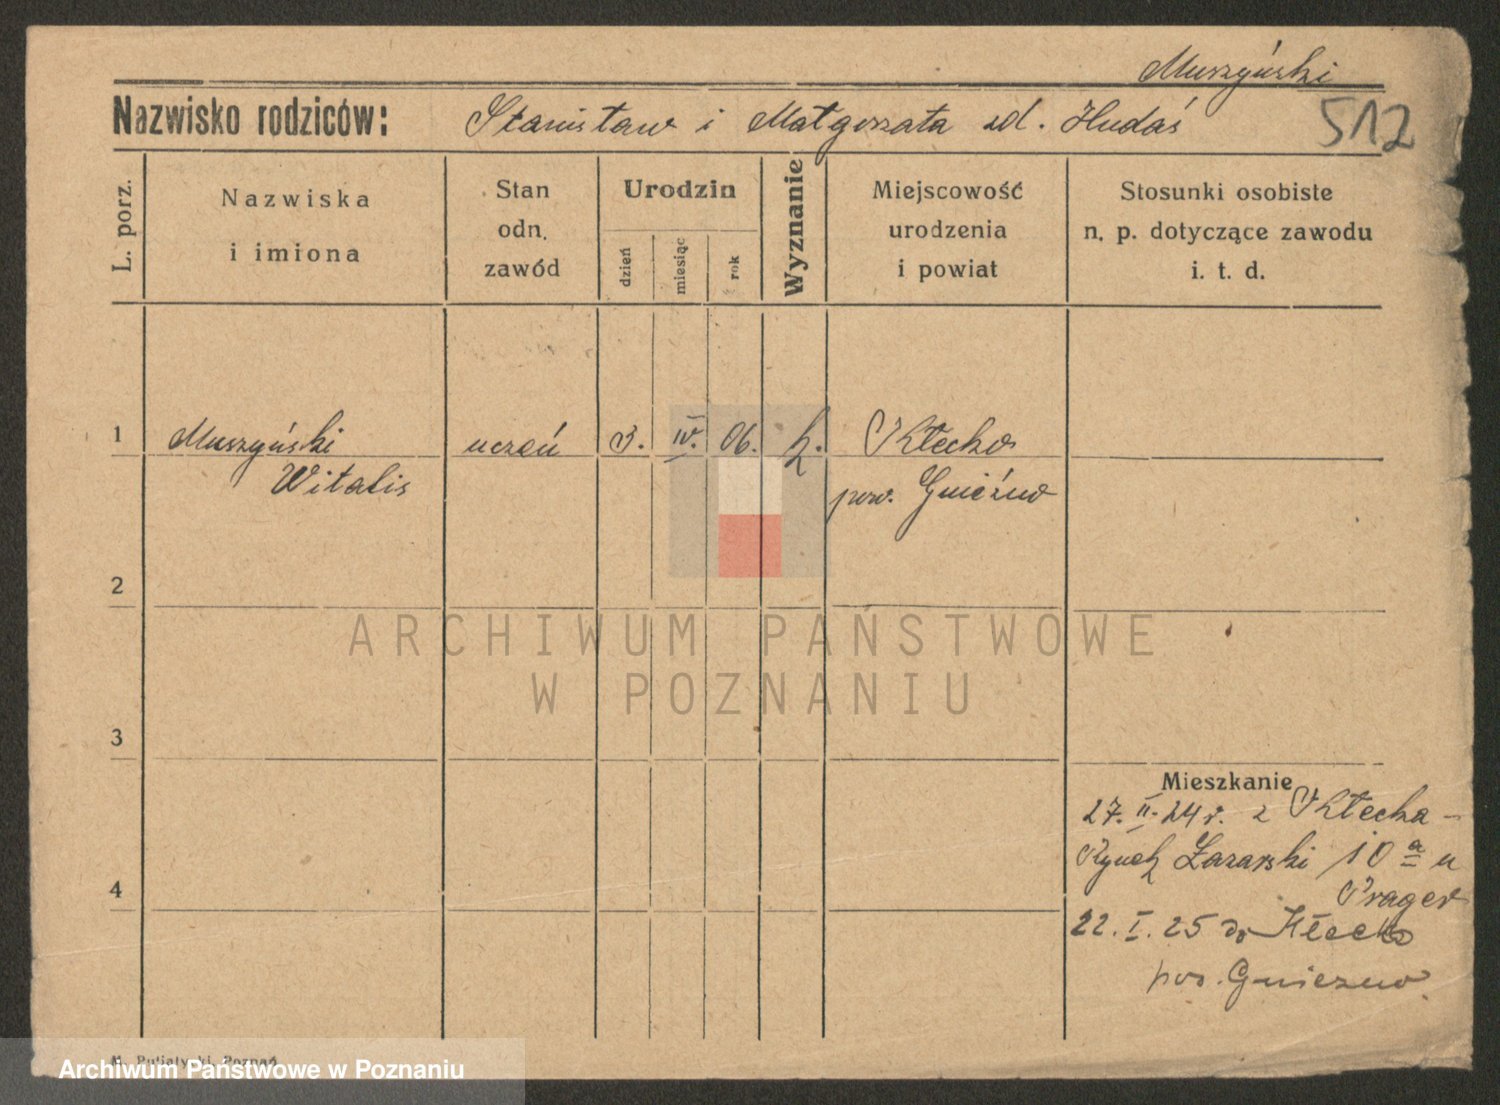 Muszyński
Nazwisko rodziców: Stanisław i Małgorzata zd. Hudaś
512
L. porz.
Nazwiska
i imiona
Stan
odn.
zawód
Urodzin
dzień
miesiąc
rok
Wyznanie
Miejscowość
urodzenia
i powiat
Stosunki osobiste
n. p. dotyczące zawodu
i. t. d.
1 Muszyński uczeń 3. IV. 06. k. Kłecko
Witalis pow. Gniézno
2
3
4
ARCHIWUM PAŃSTWOWE
W POZNANIU
Mieszkanie
27. II. 24 r. z Kłecka -
Rynek Łazarski 10 a u
Prager
22. I. 25 do Kłecko
pow. Gniezno
Poznań
Archiwum Państwowe w Poznaniu